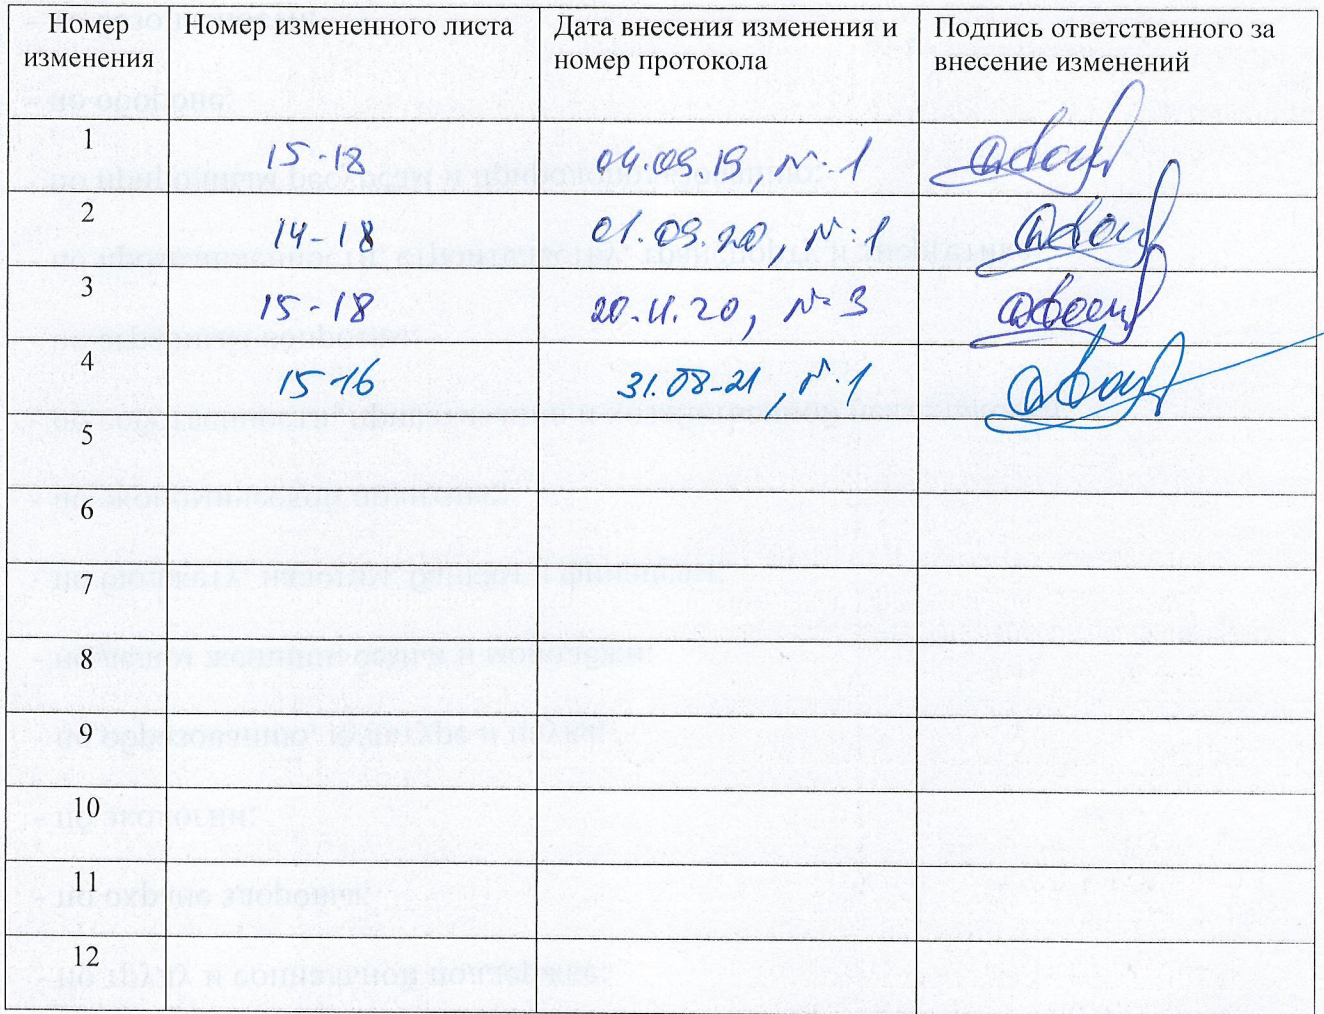 Номер изменения Номер измененного листа Дата внесения изменения и номер протокола Подпись ответственного за внесение изменений
1 15-18 04.09.19, №1
2 14-18 01.09.20, №1
3 15-18 20.11.20, №3
4 15-16 31.08.21, №1
5
6
7
8
9
10
11
12